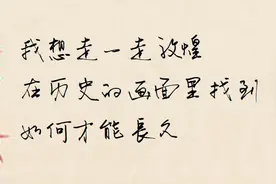 我想走一走敦煌
在历史的画面里找到
如何才能長久